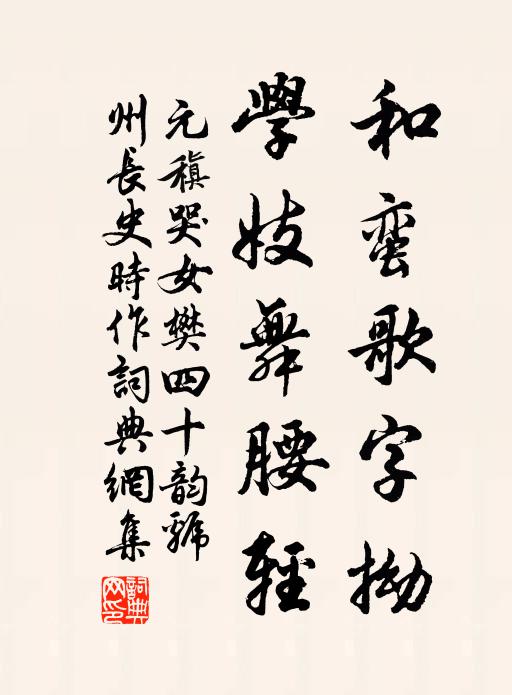 和蛮歌字拗
學妓舞腰輕
元稹哭女樊四十韵虢
州長史時作詞典網集